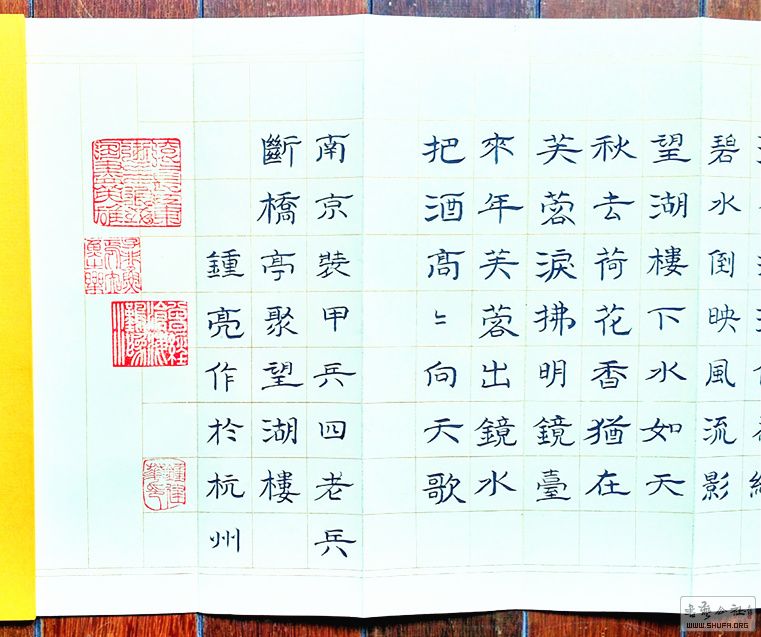 碧水倒映風流影
望湖樓下水如天
秋去荷花香猶在
芙蓉淚拂明鏡臺
來年芙蓉出鏡水
把酒高〻向天歌
南京裝甲兵四老兵
斷橋亭聚望湖樓
鍾亮作於杭州
WWW.SHUFA.ORG